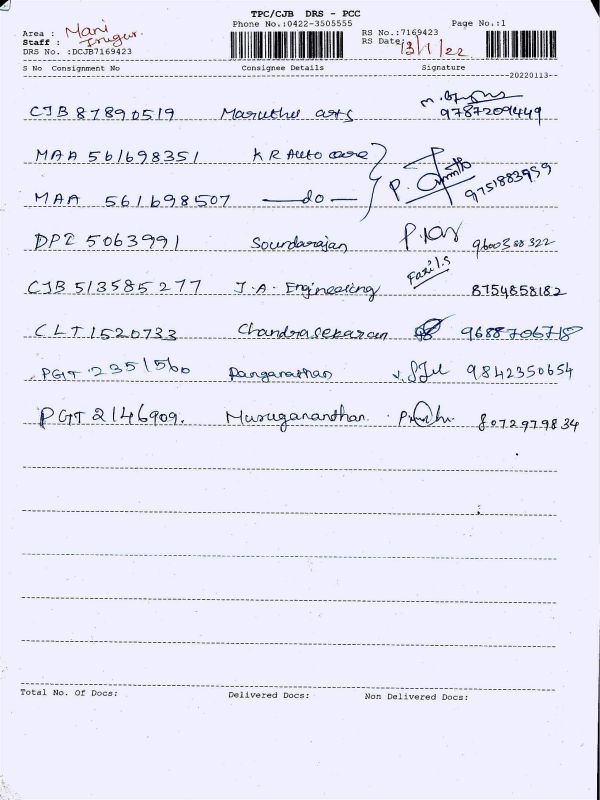 TPC/CJB DRS - PCC
Phone No.:0422-3505555 Page No.:1
Area : Mani
Staff : Irugur.
DRS No. :DCJB7169423
RS No.:7169423
RS Date: 13/1/22
S No Consignment No Consignee Details Signature
20220113
CJB 87890519 Maruthi arts 9787209449
MAA 561698351 KR Auto care
MAA 561698507 do P. 9751883959
DPI 5063991 Soundarajan 9600388322
CJB 513585277 J.A. Engineering Fazil.S 8754858182
CLT 1520733 Chandrasekaran 9688706718
PGT 2351560 Ranganathan 9842350654
PGT 2146909. Murugananthan. 8072979834
Total No. Of Docs: Delivered Docs: Non Delivered Docs: